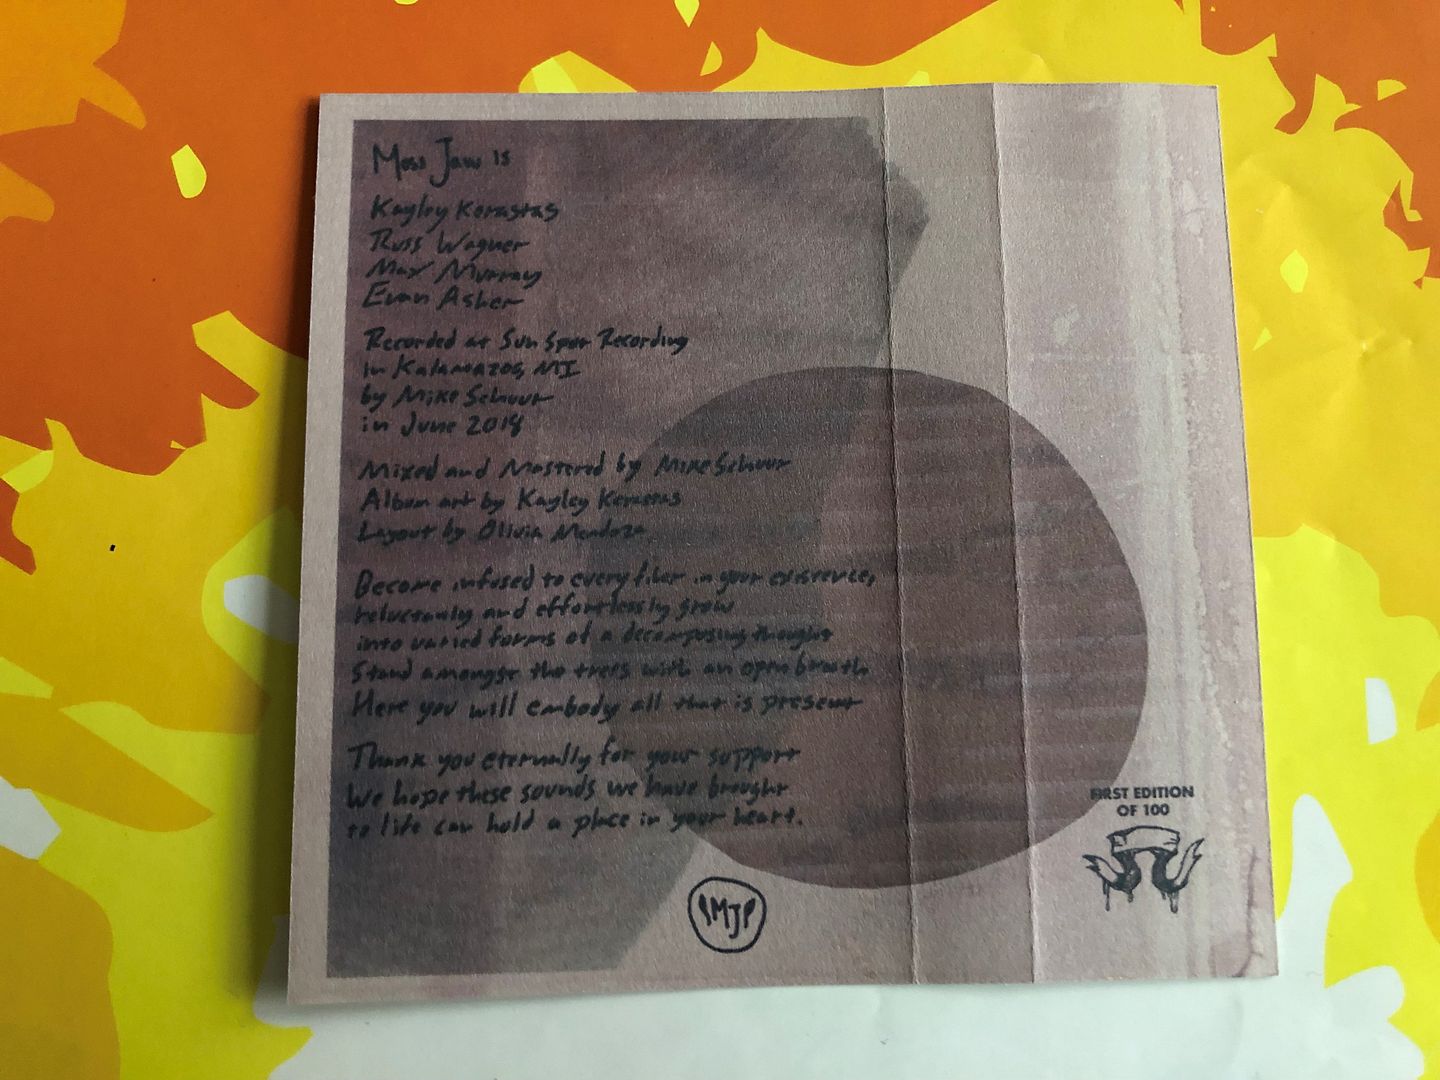 Moss Jaw is
Kayley Kerastas
Russ Wagner
Max Murray
Evan Asher
Recorded at Sun Spot Recording
in Kalamazoo, MI
by Mike Schuur
in June 2018
Mixed and Mastered by Mike Schuur
Album art by Kayley Kerastas
Layout by Olivia Mendoza
Become infused to every fiber in your existence,
reluctantly and effortlessly grow
into varied forms of a decomposing thought
Stand amongst the trees with an open breath
Here you will embody all that is present
Thank you eternally for your support
We hope these sounds we have brought
to life can hold a place in your heart.
MJ
FIRST EDITION
OF 100